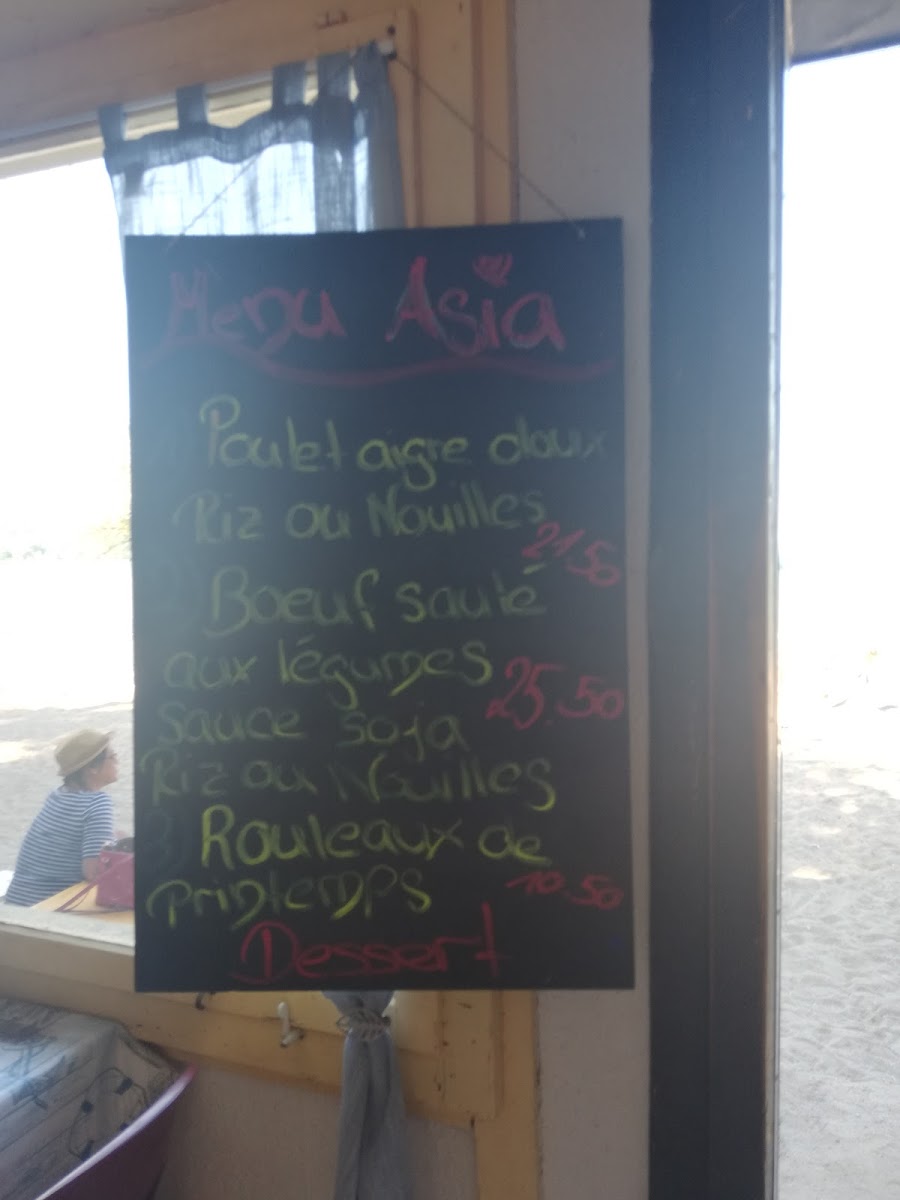 Menu Asia
Poulet aigre doux
Riz ou Nouilles
21.50
Boeuf sauté
aux légumes
25.50
sauce soja
Riz ou Nouilles
3) Rouleaux de
printemps
10.50
Dessert